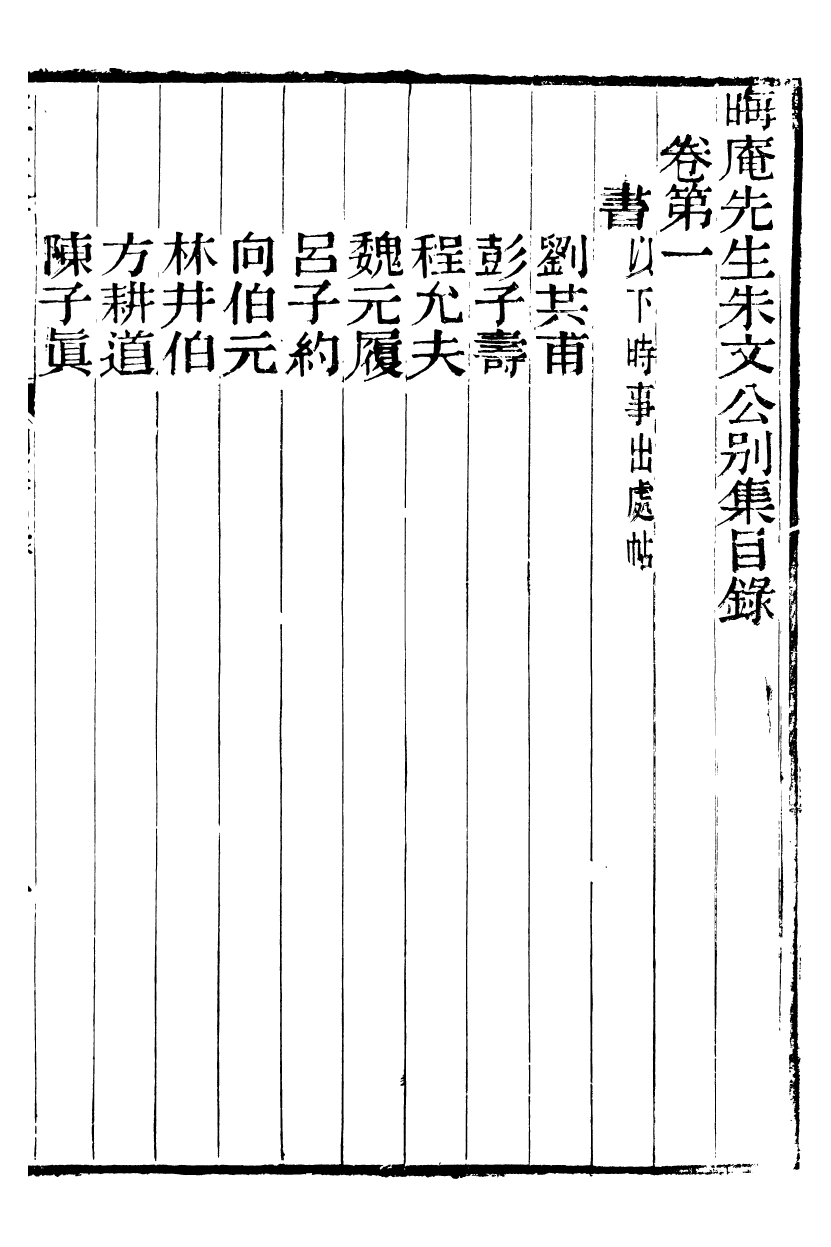 晦庵先生朱文公別集目錄
卷第一
書以下時事出處帖
劉共甫
彭子壽
程允夫
魏元履
呂子約
向伯元
林井伯
方耕道
陳子眞